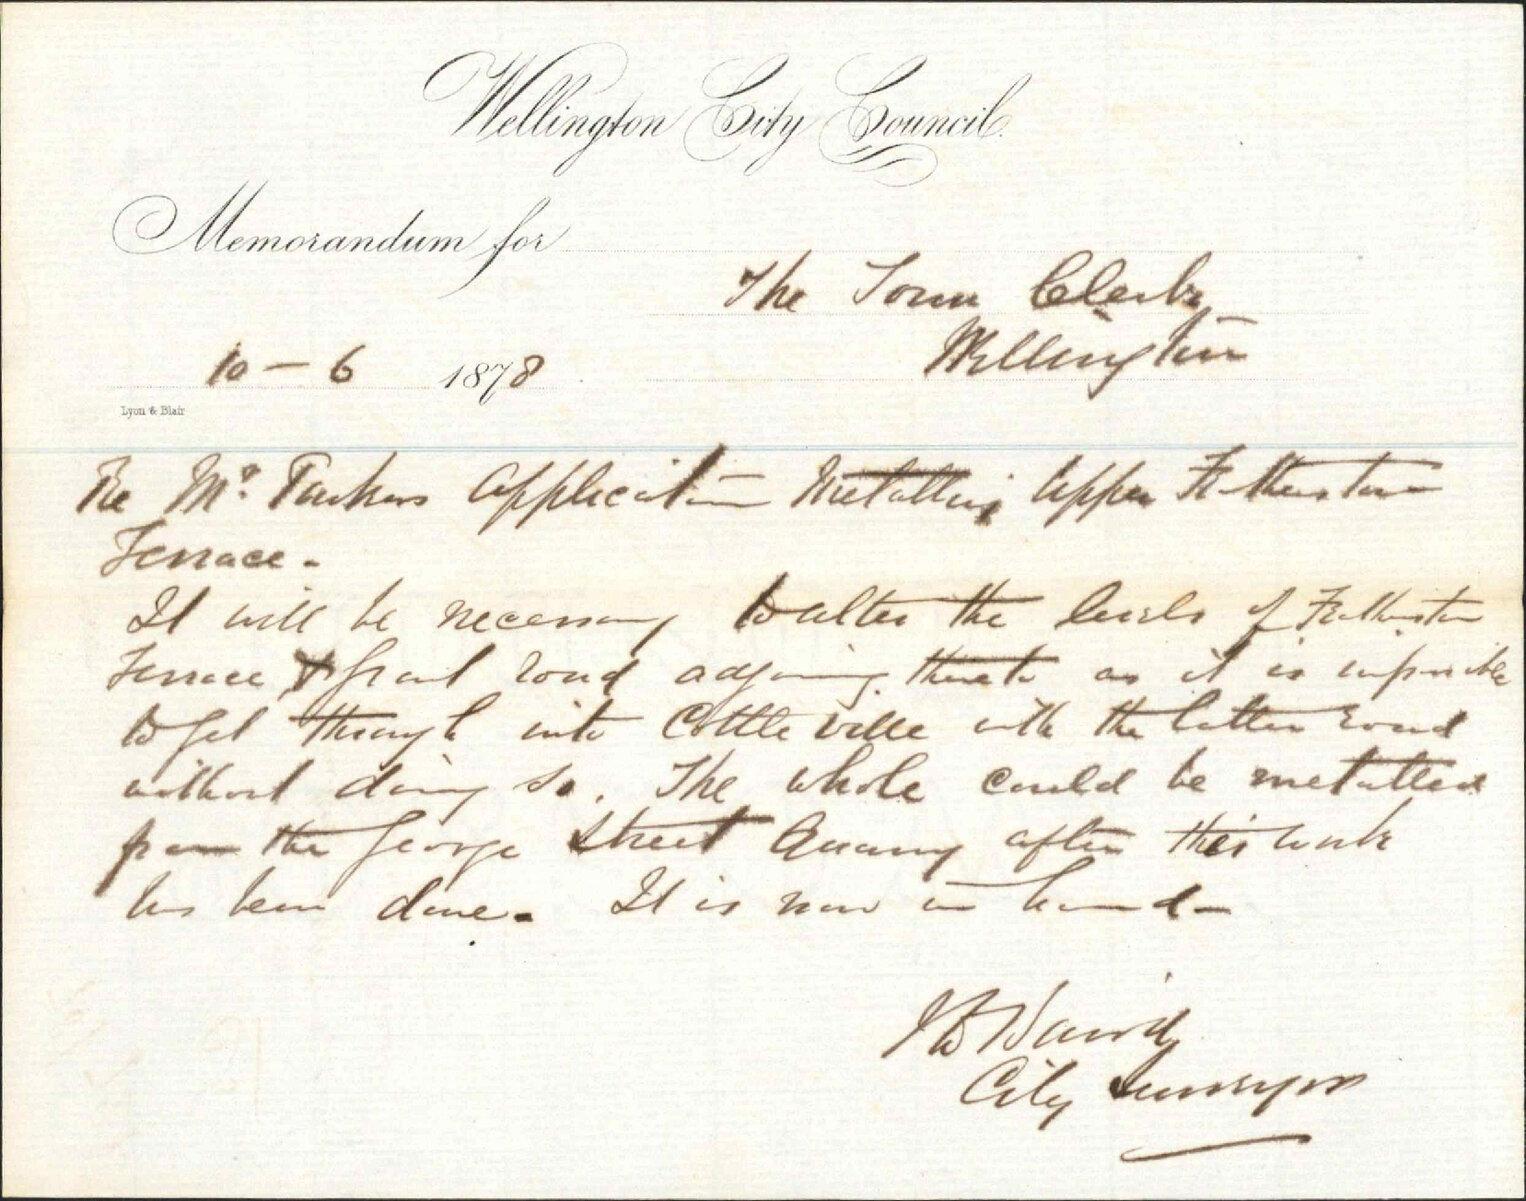 Wellington City Council.
Memorandum for
The Town Clerk
Wellington
10 - 6 1878
Lyon & Blair
Re Mr. Parkers application Metalling Upper Fetherston
Terrace -
It will be necessary to alter the levels of Fetherston
Terrace & Grant road adjoining thereto as it is impossible
to get through into Cottleville with the latter road
without doing so. The whole could be metalled
from the George Street Quarry after this work
has been done. It is now in hand -
Baird
City Surveyor